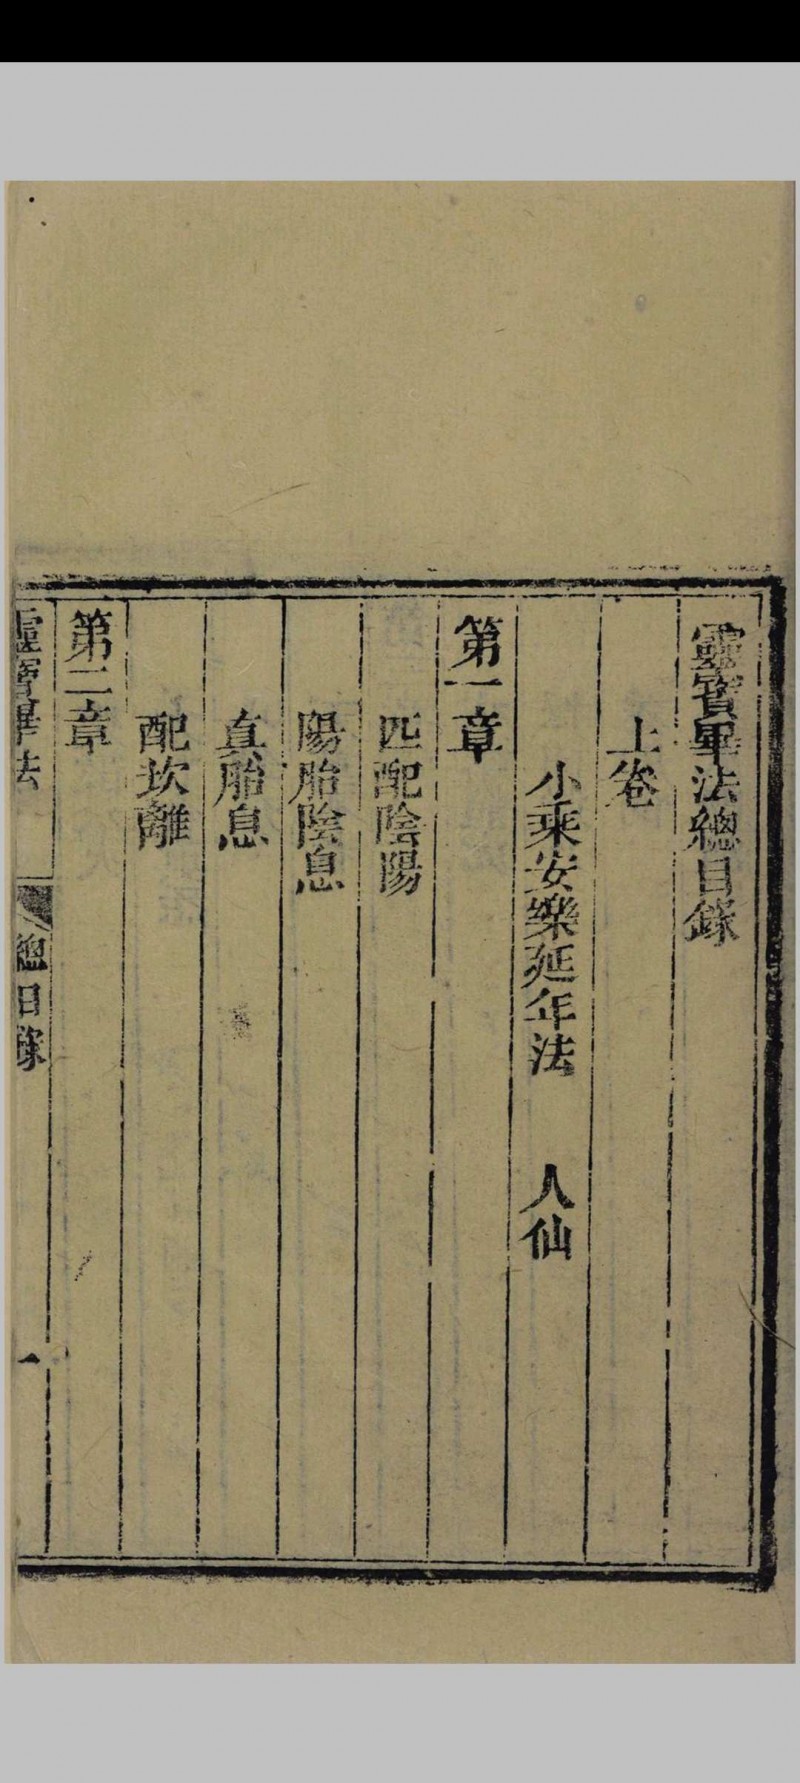 靈寳畢法總目錄
上卷
小乘安樂延年法　人仙
第一章
匹配陰陽
陽胎陰息
真胎息
配坎離
第二章
靈寳畢法　總目錄　一